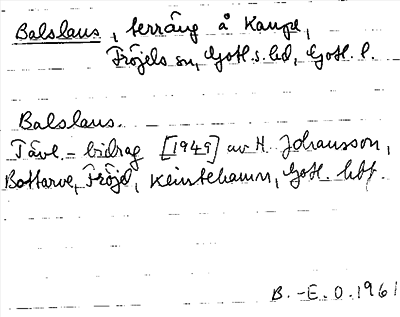 Balslaus, terräng å Kaupe,
Fröjels sn, Gotl. s. hd, Gotl. l.
Balslaus.
Tävl. - bidrag [1949] av H. Johansson,
Bottarve, Fröjel, Klintehamn, Gotl.
B.-E. O. 1961